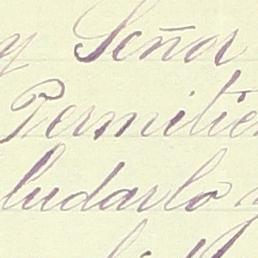 y Señor
Permitien
ludarlo y